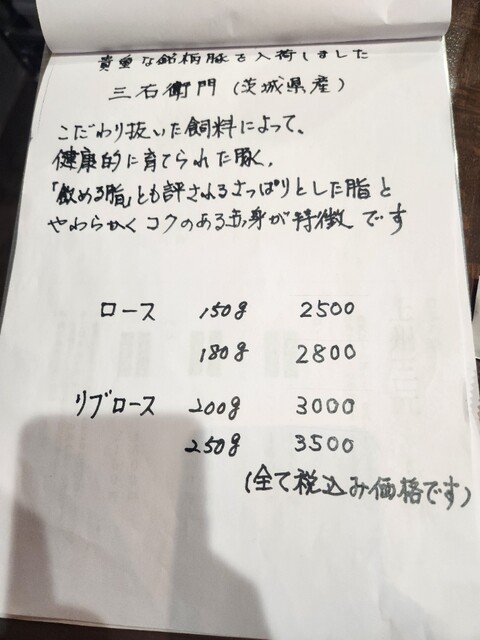 貴重な銘柄豚を入荷しました
三右衛門(茨城県産)
こだわり抜いた飼料によって、
健康的に育てられた豚。
「飲める脂」とも評されるさっぱりとした脂と
やわらかくコクのある赤身が特徴です
ロース 150g 2500
180g 2800
リブロース 200g 3000
250g 3500
(全て税込み価格です)